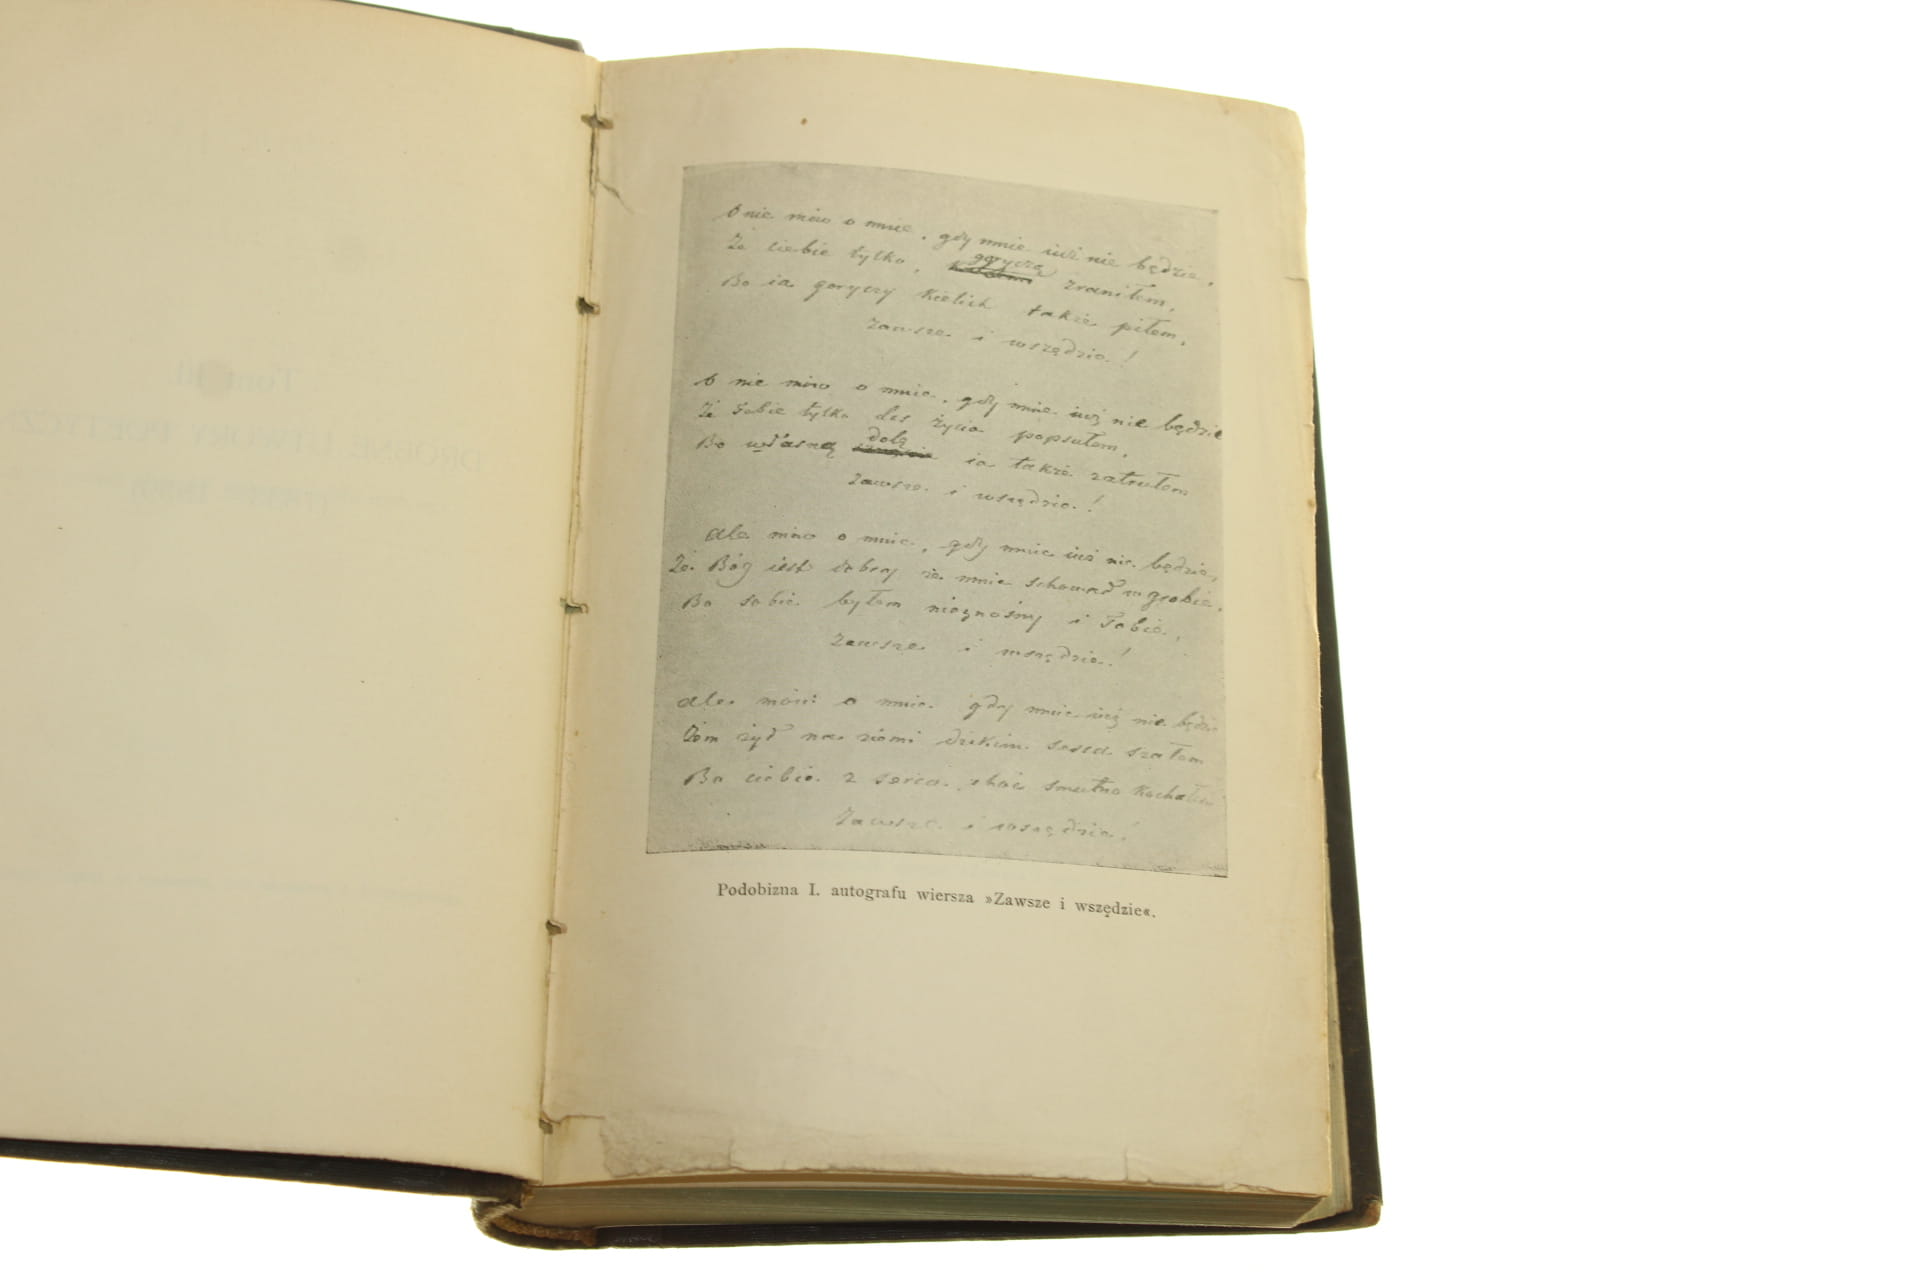 O nie mów o mnie, gdy mnie iuż nie będzie,
Że ciebie tylko, goryczą zraniłem,
Bo ia goryczy kielich także piłem,
Zawsze i wszędzie!
O nie mów o mnie, gdy mnie iuż nie będzie
Że Tobie tylko los życia popsułem,
Bo własną dolę ia także zatrułem
Zawsze i wszędzie!
Ale mów o mnie, gdy mnie iuż nie będzie,
Że Bóg iest dobry że mnie schował w grobie,
Bo sobie byłem nieznośny i Tobie,
Zawsze i wszędzie!
Ale mów o mnie gdy mnie iuż nie będzie
Żem żył na ziemi dzikim serca szałem
Bo ciebie z serca, choć smutno kochałem
Zawsze i wszędzie!
Podobizna I. autografu wiersza »Zawsze i wszędzie«.
Tom III.
DROBNE UTWORY POETYCZN